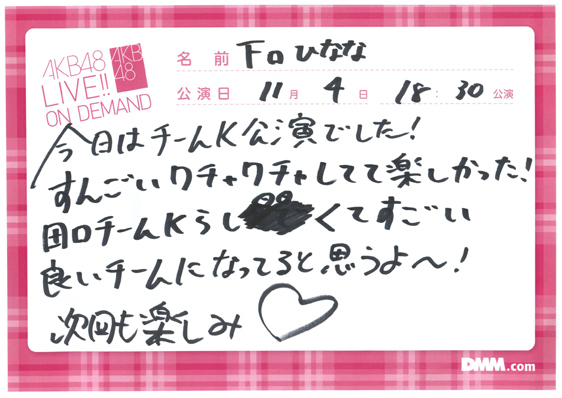 AKB48
LIVE!!
ON DEMAND
AKB
48
名前 下口ひなな
公演日 11月4日 18:30公演
今日はチームK公演でした!
すんごいクチャクチャしてて楽しかった!
田口チームKらしくてすごい
良いチームになってると思うよ〜!
次回も楽しみ
DMM.com